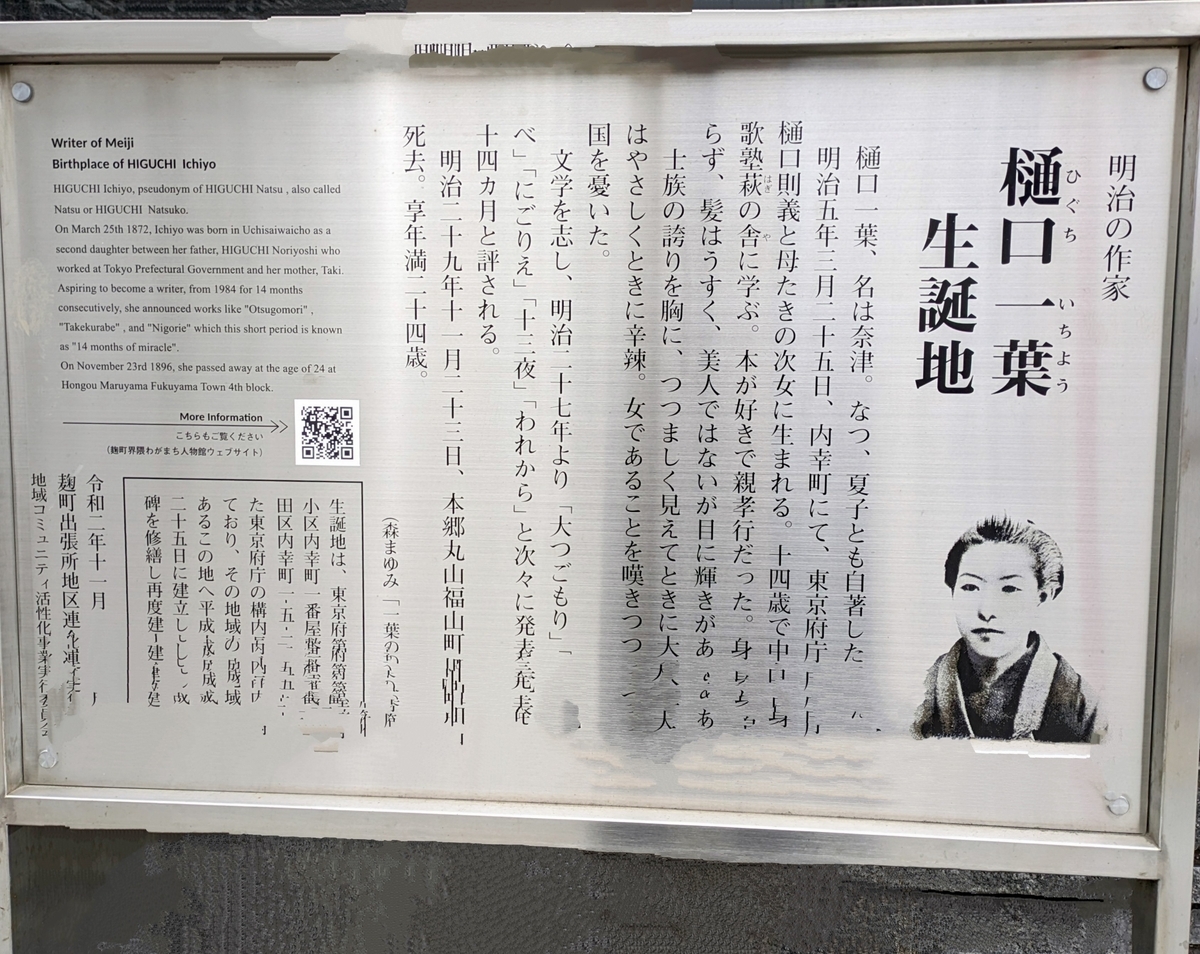 明治の作家
樋口一葉
ひぐち いちよう
生誕地
樋口一葉、名は奈津。なつ、夏子とも自著した
明治五年三月二十五日、内幸町にて、東京府庁
樋口則義と母たきの次女に生まれる。十四歳で中
歌塾萩の舎に学ぶ。本が好きで親孝行だった。身
はぎ や
らず、髪はうすく、美人ではないが目に輝きがあ
士族の誇りを胸に、つつましく見えてときに大
はやさしくときに辛辣。女であることを嘆きつつ
国を憂いた。
文学を志し、明治二十七年より「大つごもり」「
べ」「にごりえ」「十三夜」「われから」と次々に発表
十四カ月と評される。
明治二十九年十一月二十三日、本郷丸山福山町
死去。享年満二十四歳。
(森まゆみ「一葉の
Writer of Meiji
Birthplace of HIGUCHI Ichiyo
HIGUCHI Ichiyo, pseudonym of HIGUCHI Natsu , also called
Natsu or HIGUCHI Natsuko.
On March 25th 1872, Ichiyo was born in Uchisaiwaicho as a
second daughter between her father, HIGUCHI Noriyoshi who
worked at Tokyo Prefectural Government and her mother, Taki.
Aspiring to become a writer, from 1984 for 14 months
consecutively, she announced works like "Otsugomori" ,
"Takekurabe" , and "Nigorie" which this short period is known
as "14 months of miracle".
On November 23rd 1896, she passed away at the age of 24 at
Hongou Maruyama Fukuyama Town 4th block.
More Information
こちらもご覧ください
(麹町界隈わがまち人物館ウェブサイト)
生誕地は、東京府第
小区内幸町一番屋
田区内幸町一-五-二
た東京府庁の構内
ており、その地域の
あるこの地へ平成
二十五日に建立し
碑を修繕し再度建
令和二年十一月
麹町出張所地区連
地域コミュニティ活性化事業実行委員会